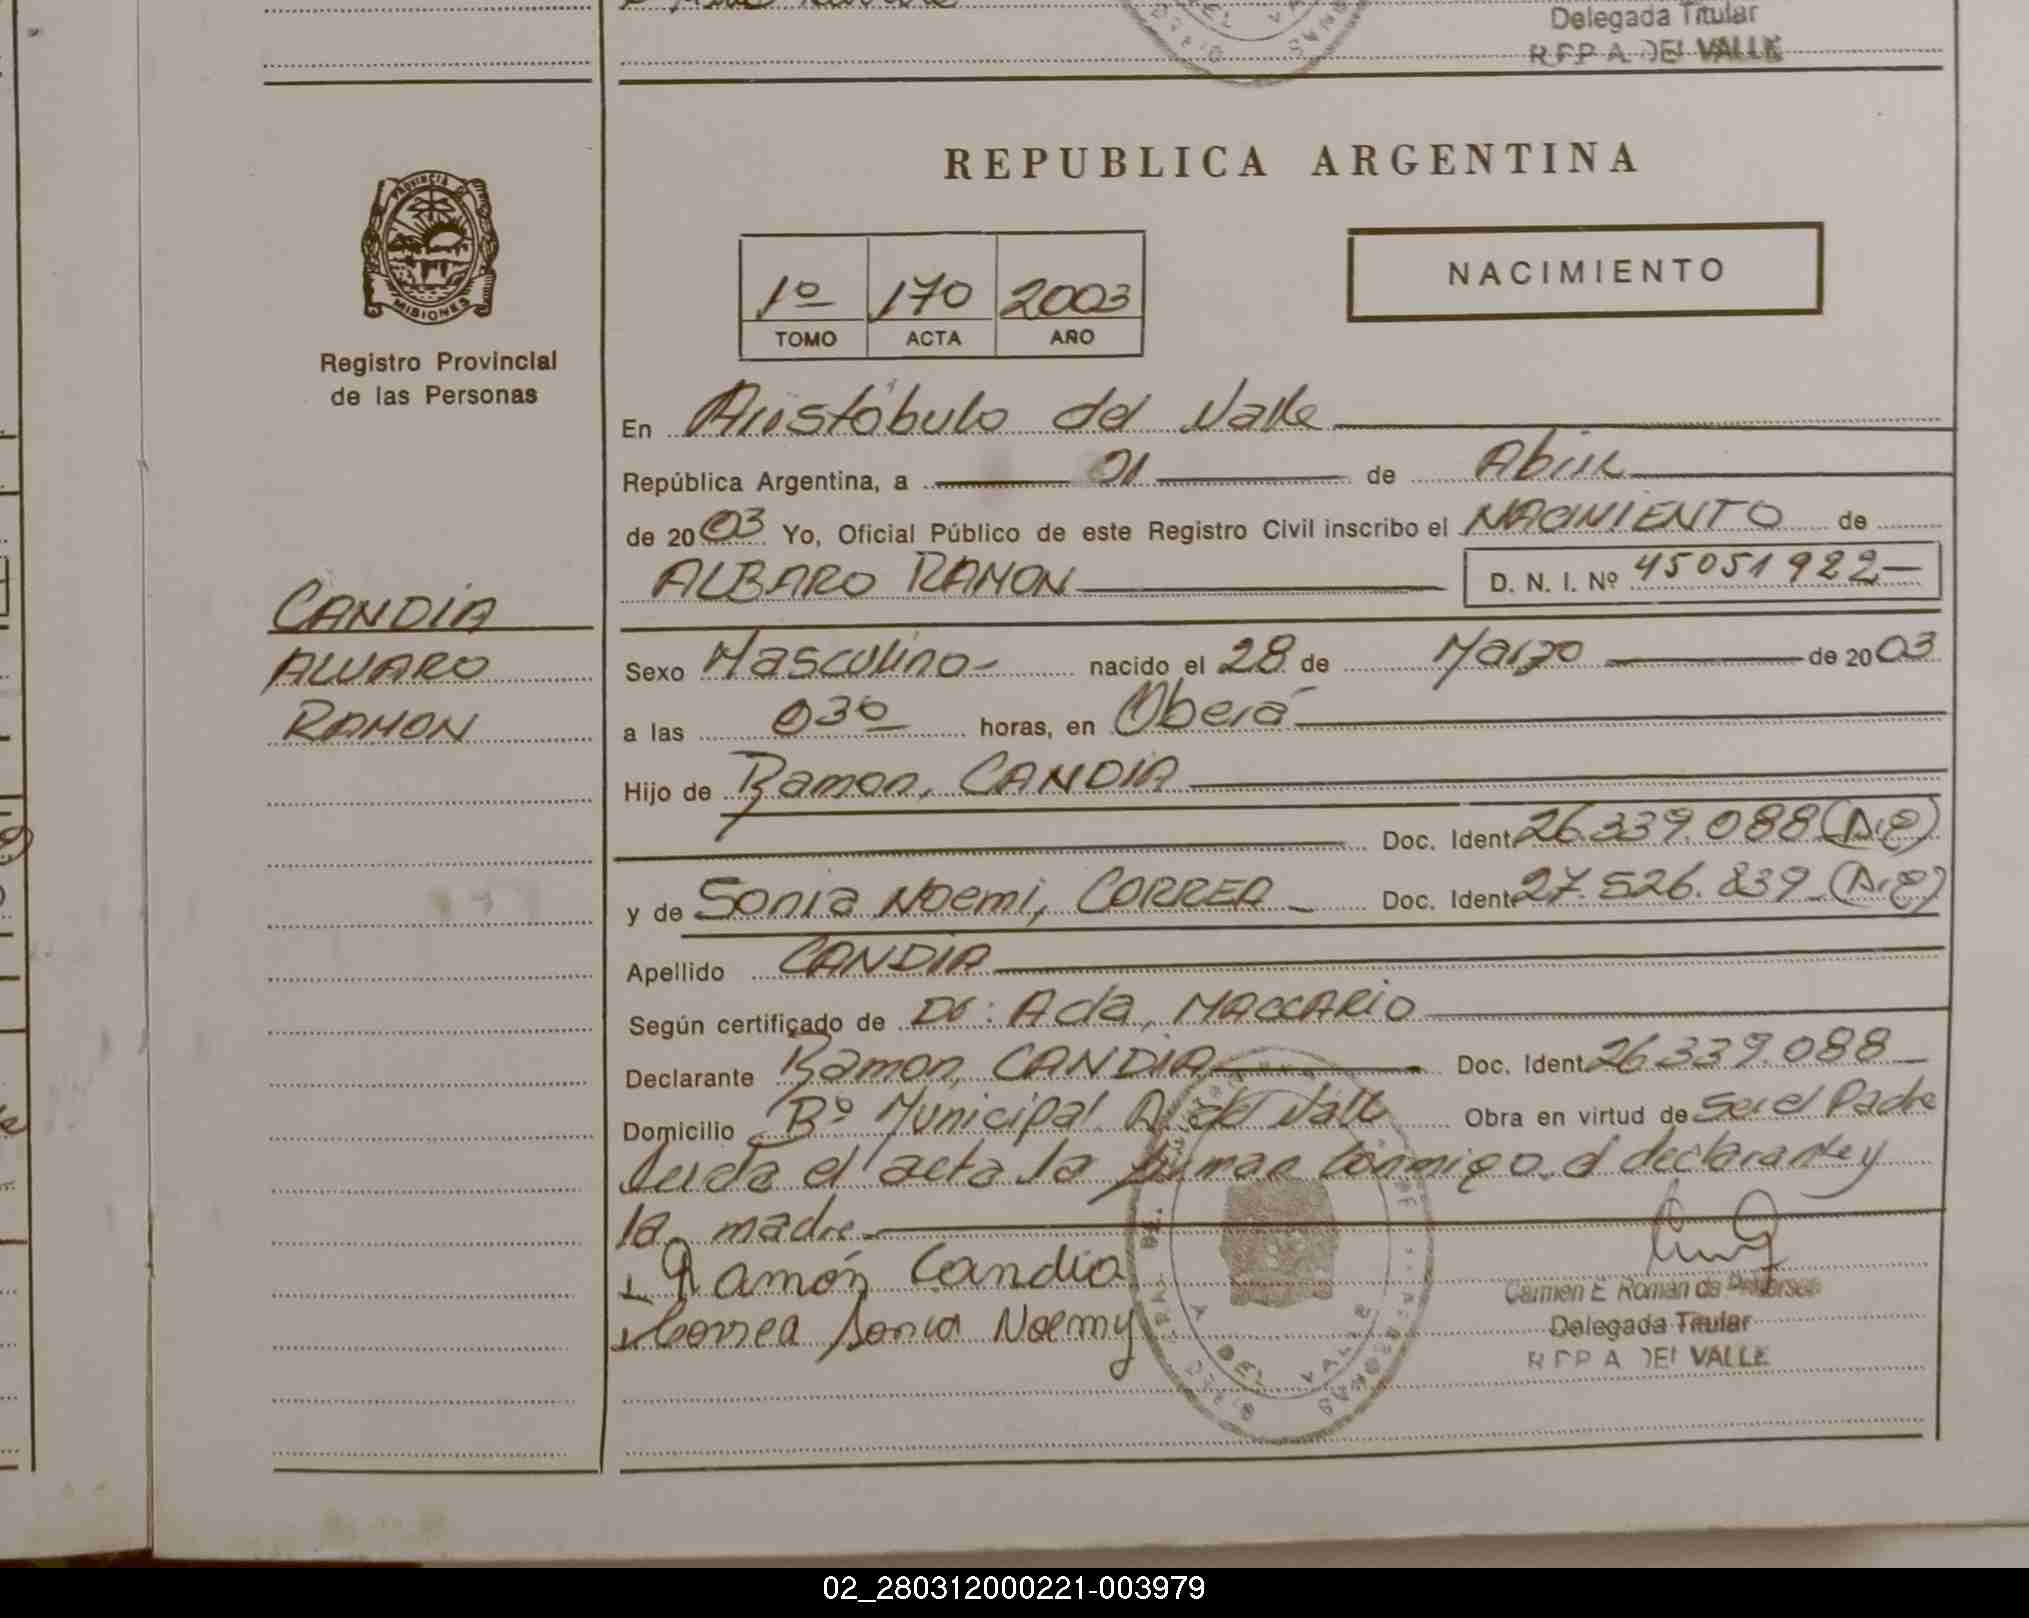 Delegada Titular
R.P.P. A. DEL VALLE
REPUBLICA ARGENTINA
PROVINCIA DE
MISIONES
Registro Provincial
de las Personas
1º 170 2003
TOMO ACTA AÑO
NACIMIENTO
En Aristóbulo del Valle
República Argentina, a 01 de Abril
de 2003 Yo, Oficial Público de este Registro Civil inscribo el NACIMIENTO de
ALBARO RAMON D. N. I. Nº 45051922
CANDIA
ALVARO
RAMON
Sexo Masculino nacido el 28 de Marzo de 2003
a las 030 horas, en Oberá
Hijo de Ramon, CANDIA
Doc. Ident. 26.339.088 (A.P)
y de Sonia Noemi, CORREA Doc. Ident. 27.526.839 (A.P)
Apellido CANDIA
Según certificado de Dr: Ada, MACCARIO
Declarante Ramon, CANDIA Doc. Ident. 26.339.088
Domicilio Bº Municipal A. del Valle Obra en virtud de Ser el Padre
leida el acta la firman conmigo el declarante y
la madre
Ramón Candia
Correa Sonia Noemy
Carmen E. Roman de
Delegada Titular
R.P.P. A. DEL VALLE
DEL VALLE
02_280312000221-003979